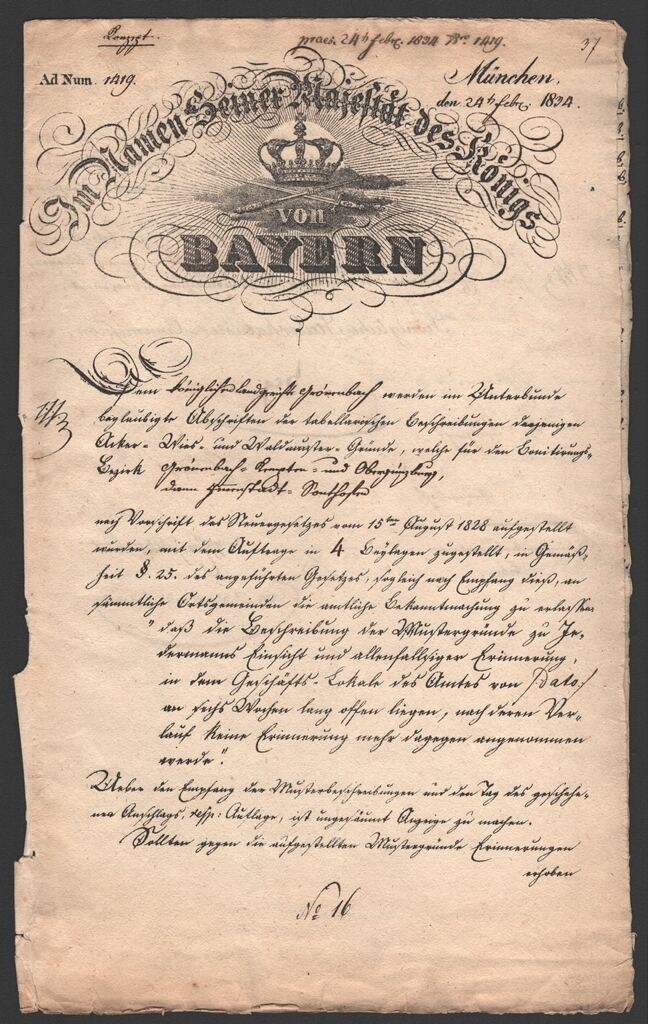 Konzept.
praes. 24t Febr. 1834 No. 1419.
37
Ad Num. 1419.
München,
den 24t Febr. 1834.
Im Namen Seiner Majestät des Königs
von
BAYERN
Dem königlichen Landgericht Grönenbach werden im Unterbunde
beglaubigte Abschriften der tabellarischen Beschreibungen derjenigen
Acker- Wies- und Waldmuster-Gründe, welche für den Bonitirungs-
Bezirk Grönenbach- Kempten- und Obergünzburg,
dann Immenstadt- Sonthofen
nach Vorschrift des Steuergesetzes vom 15ten August 1828 aufgestellt
wurden, mit dem Auftrage in 4 Beylagen zugestellt, in Gemäß-
heit §. 25. des angeführten Gesetzes, sogleich nach Empfang dieß, an
sämmtliche Ortsgemeinden die amtliche Bekanntmachung zu erlassen
" daß die Beschreibung der Mustergründe zu Je-
dermanns Einsicht und allenfallsiger Erinnerung,
in dem Geschäfts-Lokale des Amtes von /: dato :/
an sechs Wochen lang offen liegen, nach deren Ver-
lauf keine Erinnerung mehr dagegen angenommen
werde".
Ueber den Empfang der Musterbeschreibungen und den Tag des geschehe-
nen Anschlags, resp: Auflage, ist ungesäumt Anzeige zu machen.
Sollten gegen die aufgestellten Mustergründe Erinnerungen
erhoben
No 16